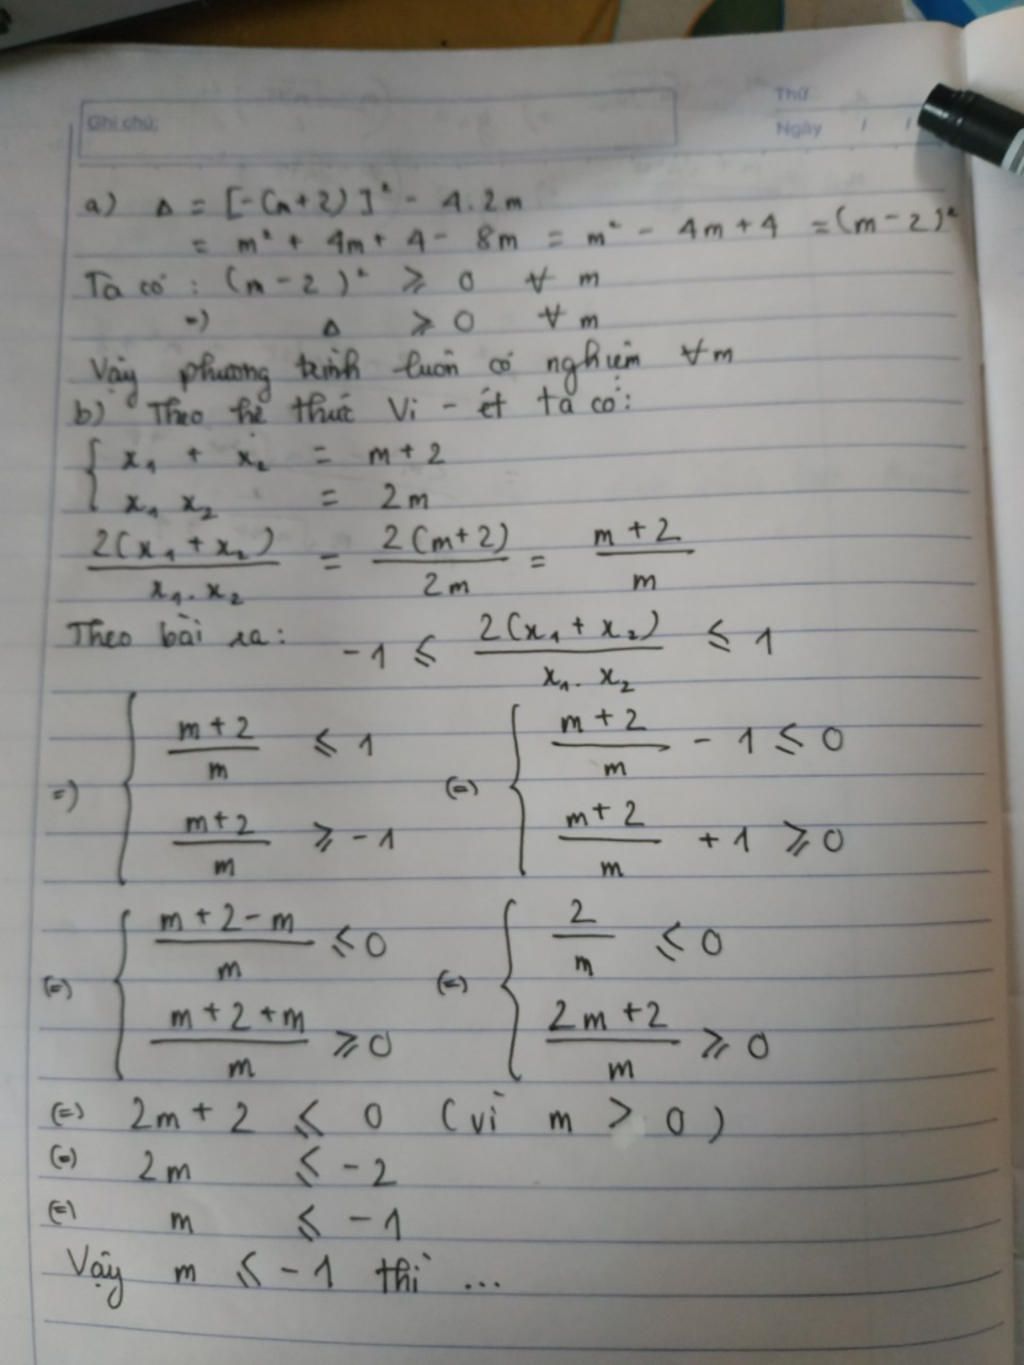 Ghi chú:
Thứ
Ngày / /
a) Δ = [-(m+2)]² - 4.2m
= m² + 4m + 4 - 8m = m² - 4m + 4 = (m-2)²
Ta có : (m-2)² ⩾ 0 ∀ m
=) Δ ⩾ 0 ∀ m
Vậy phương trình luôn có nghiệm ∀m
b) Theo hệ thức Vi - ét ta có:
{ x₁ + x₂ = m+2
x₁ x₂ = 2m
2(x₁+x₂) / x₁.x₂ = 2(m+2) / 2m = m+2 / m
Theo bài ra: -1 ⩽ 2(x₁+x₂) / x₁.x₂ ⩽ 1
=) { m+2 / m ⩽ 1 (=) { m+2 / m - 1 ⩽ 0
m+2 / m ⩾ -1 m+2 / m + 1 ⩾ 0
(=) { m+2-m / m ⩽ 0 (=) { 2 / m ⩽ 0
m+2+m / m ⩾ 0 2m+2 / m ⩾ 0
(=) 2m+2 ⩽ 0 (vì m > 0)
(=) 2m ⩽ -2
(=) m ⩽ -1
Vậy m ⩽ -1 thì ...